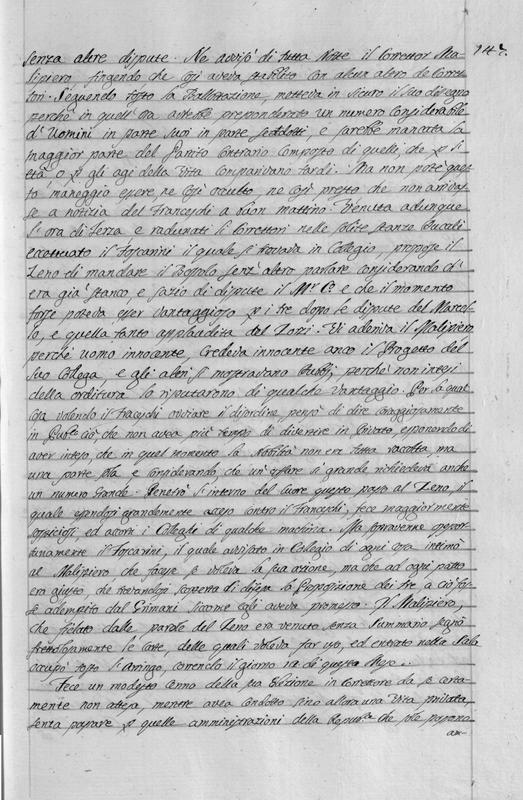 147
senza altre dispute. Ne avvisò di tutta Notte il Correttor Ma-
lipiero fingendo che così aveva stabilito con alcun altro de Corret-
tori. Seguendo tosto la Ballottazione, metteva in sicuro il suo disegno
perchè in quell' ora avrebbe preponderato un numero considerabile
d' Uomini in parte suoi in parte sedotti, e sarebbe mancata la
maggior parte del Partito contrario composto di quelli, che p si
età, o p gli agi della Vita comparivano tardi. Ma non potè questo
maneggio essere nè così occulto, nè così presto che non arrivas-
se a notizia del Franceschi a buon mattino. Venuta adunque
l' ora di Terza e radunati li Correttori nelle solite stanze Ducali
eccettuato il Foscarini il quale si trovava in Collegio, propose il
Zeno di mandare il Bossolo, senz' altro parlare considerando ch'
era già stanco, e sazio di dispute il Mr. Co: e che il momento
forse poteva esser vantaggioso p i tre dopo le dispute del Marcel-
lo, e quella tanto applaudita del Zorzi. Vi aderiva il Malipiero
perchè uomo innocente, credeva innocente anco il Progetto del
suo Collega, e gli altri si mostravano perchè non intesi
della orditura la riputarono di qualche vantaggio. Per la qual
cosa volendo il Franceschi ovviare il disordine pensò di dire coraggiosamente
in Pubco. ciò, che non avea più tempo di divenire in Privato esponendo di
aver inteso, che in quel momento la Nobiltà non era tutta raccolta, ma
una parte sola, e considerando, che un' affare sì grande richiedeva anche
un numero grande. Penetrò l' interno del Cuore questo passo al Zeno, il
quale essendosi grandemente acceso contro il Franceschi, fece maggiormente
ed accorti i Colleghi di qualche machina. Ma sopravenne oppor-
tunamente il Foscarini, il quale avvisato in Collegio di ogni cosa intimò
al Malipiero, che facesse se voleva la sua azione, ma che ad ogni patto
era giusto, che trovandosi scoperta di difesa la Proposizione dei tre a ciò fos-
se adempito dal Grimani siccome egli aveva promesso. Il Malipiero,
che fidato dalle parole del Zeno era venuto senza Summario segnò
frettolosamente le Carte, delle quali voleva far uso, ed entrato nella Sala
occupò tosto l' Aringo, correndo il giorno
Fece un modesto cenno della sua Elezione in Correttore da se certa-
mente non attesa, mentre avea condotto sino allora una Vita privata,
senza passare p quelle amministrazioni della Repubca. che sole possono
am-